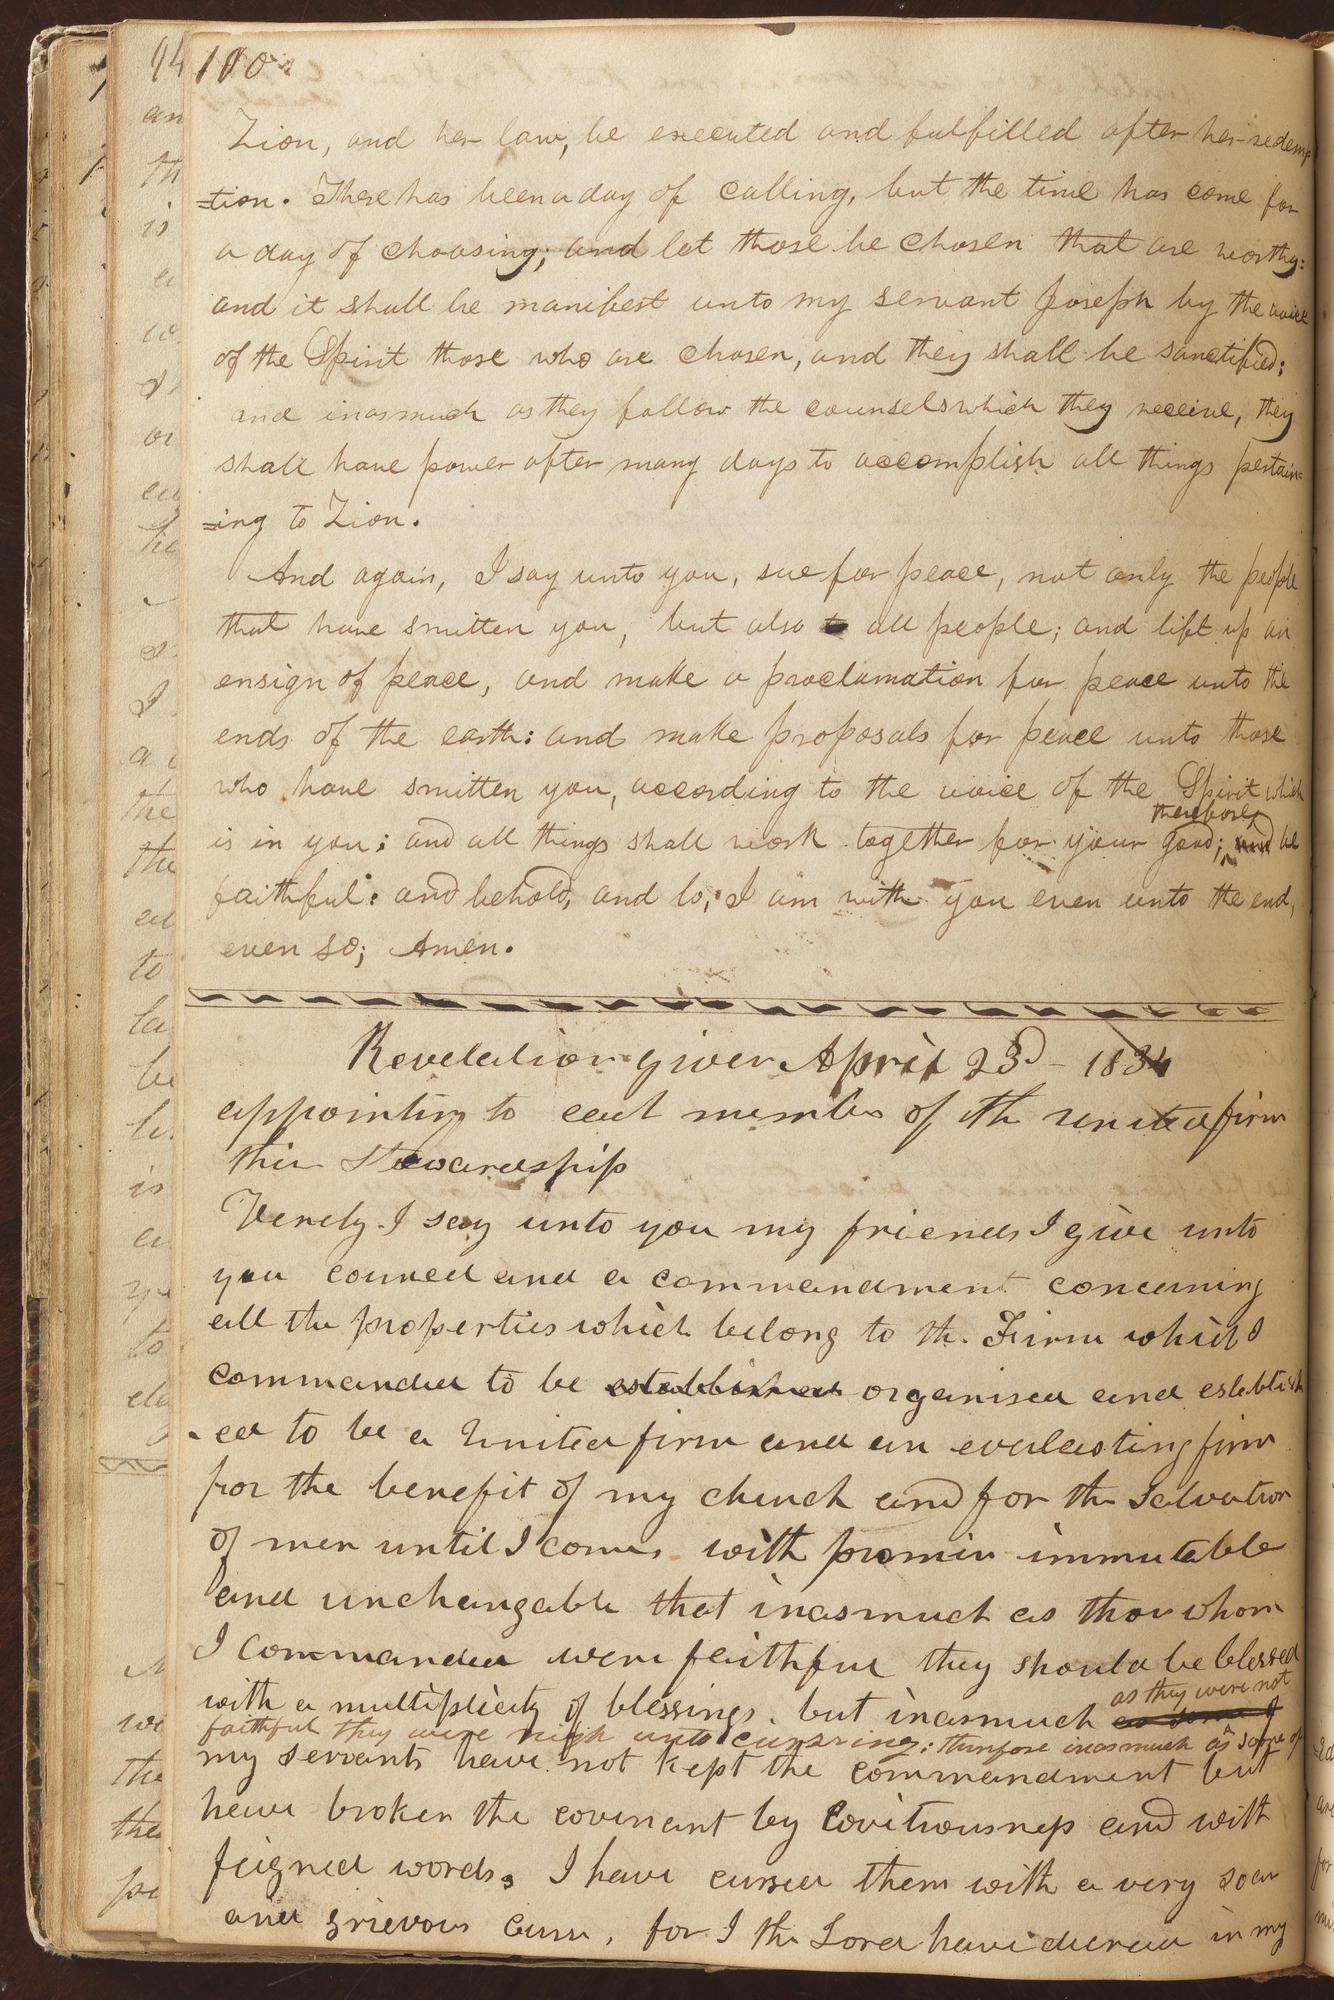 100
Zion, and her law, be executed and fulfilled after her redemp
=tion. There has been a day of calling, but the time has come for
a day of choosing; and let those be chosen that are worthy:
and it shall be manifest unto my servant Joseph by the voice
of the Spirit those who are chosen, and they shall be sanctified;
and inasmuch as they follow the counsels which they receive, they
shall have power after many days to accomplish all things pertain=
=ing to Zion.
And again, I say unto you, sue for peace, not only the people
that have smitten you, but also to all people; and lift up an
ensign of peace, and make a proclamation for peace unto the
ends of the earth: and make proposals for peace unto those
who have smitten you, according to the voice of the Spirit which
therefore,
is in you: and all things shall work together for your good; and be
faithful: and behold, and lo, I am with you even unto the end,
even so; Amen.
Revelation given April 23d - 1834
appointing to each member of the united firm
their Stewardship
Verely I say unto you my friends I give unto
you councel and a commandment concerning
all the properties which belong to the Firm which I
commanded to be established organised and establish
ed to be a united firm and an everlasting firm
for the benefit of my church and for the Salvation
of men until I come, with promise immutable
and unchangable that inasmuch as those whom
I commanded were faithful they should be blessed
with a multiplicity of blessings, but inasmuch as some of
as they were not
faithful they were nigh unto curssing; therefore inasmuch as some of
my servants have not kept the commandment but
have broken the covenant by Covitiousness and with
feigned words, I have cursed them with a very soar
and grievous curse, for I the Lord have decreed in my